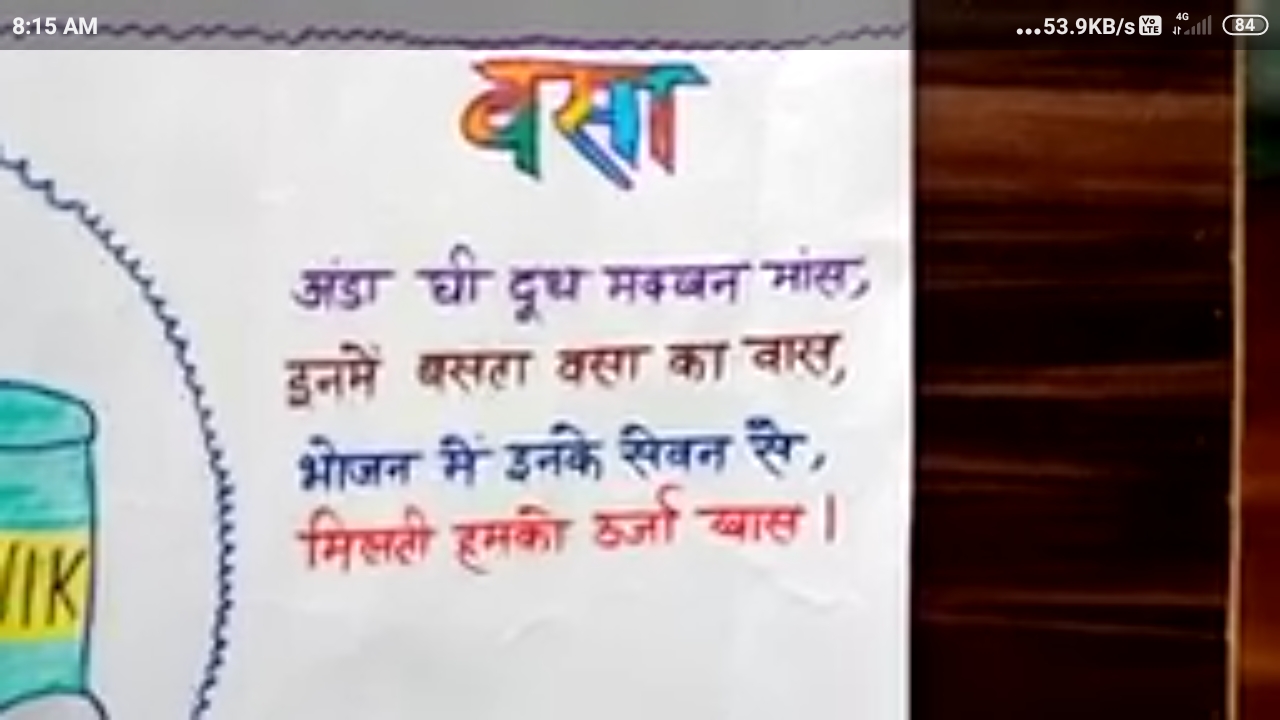 8:15 AM
...53.9KB/s Vo LTE 4G 84
वसा
अंडा घी दूध मक्खन मांस,
इनमें बसता वसा का वास,
भोजन में इनके सेवन से,
मिलती हमको ऊर्जा खास।
VIK